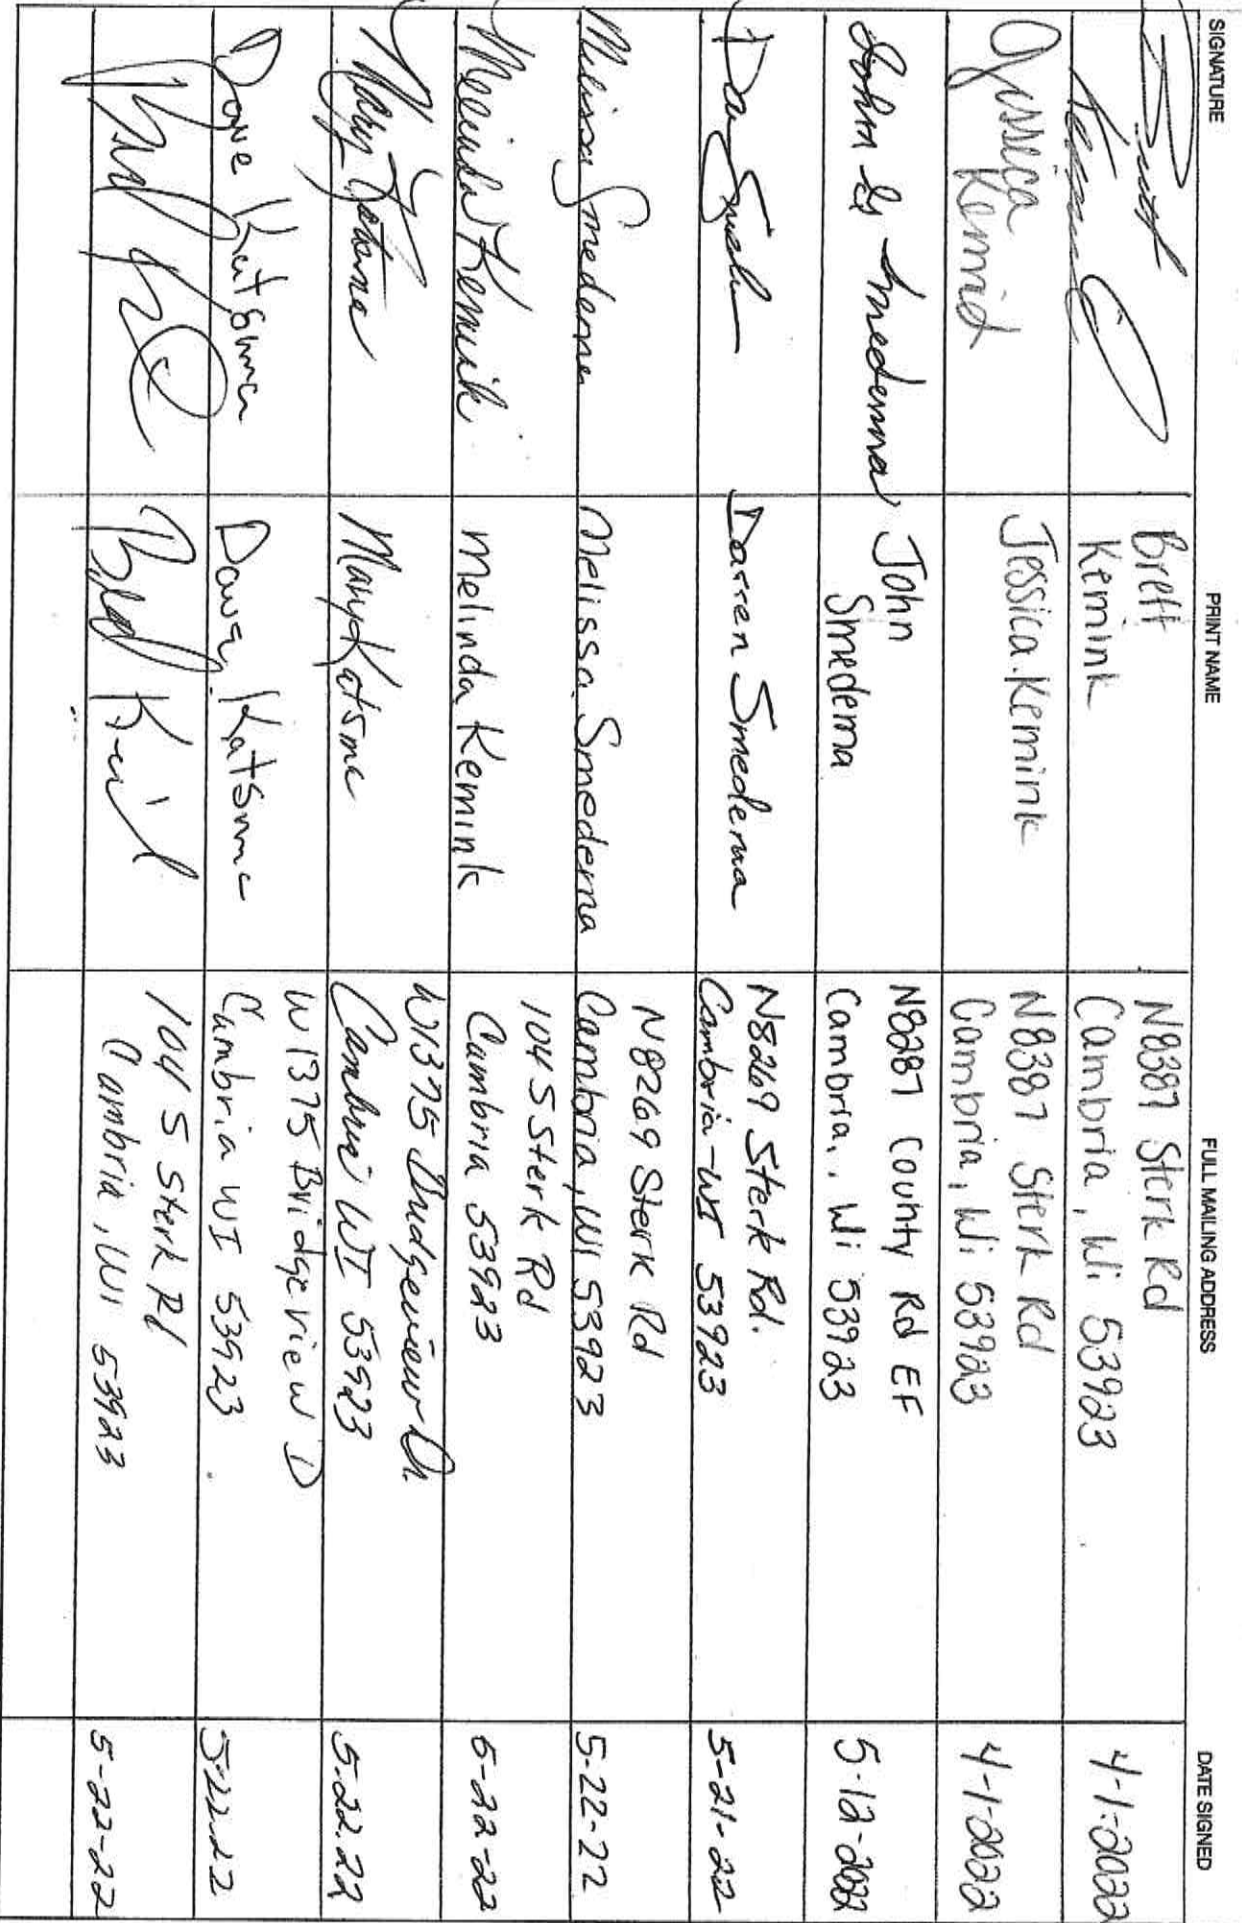 SIGNATURE PRINT NAME FULL MAILING ADDRESS DATE SIGNED
Brett
Kemink
Brett
Kemink
N8387 Sterk Rd
Cambria, Wi 53923
4-1-2022
Jessica
Kemink
Jessica Kemink
N8387 Sterk Rd
Cambria, Wi 53923
4-1-2022
John Smedema
John
Smedema
N8287 County Rd EF
Cambria, Wi 53923
5-12-2022
Darren Smedema
N8269 Sterk Rd.
Cambria-WI 53923
5-21-22
Melissa Smedema
Melissa Smedema
N8269 Sterk Rd
Cambria, WI 53923
5-22-22
Melinda Kemink
Melinda Kemink
104 S Sterk Rd
Cambria 53923
5-22-22
Mary Katsma
Mary Katsma
W1375 Bridgeview Dr.
Cambria WI 53923
5.22.22
Dave Katsma
Dave Katsma
W1375 Bridgeview D
Cambria WI 53923
5-22-22
104 S Sterk Rd
Cambria, WI 53923
5-22-22